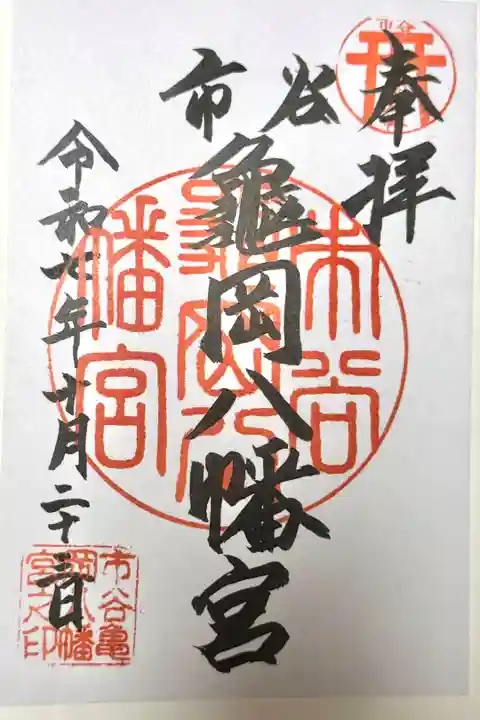 奉拝
市谷
亀岡八幡宮
令和七年十月二十三日
市谷
亀岡八
幡宮
市谷亀
岡八幡
宮之印